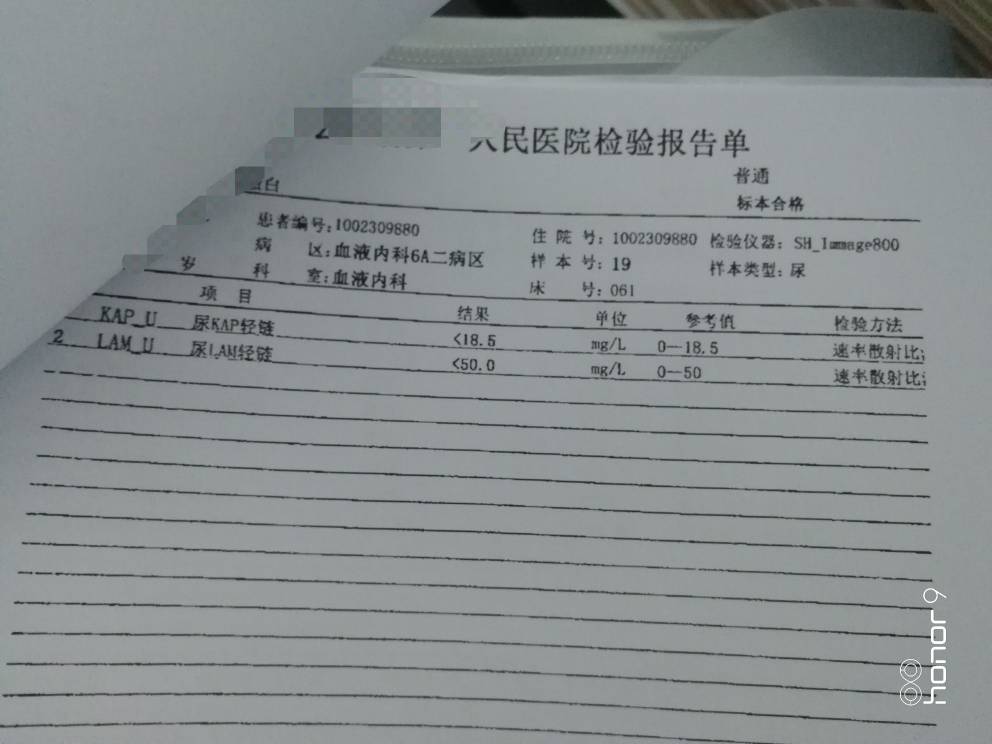 人民医院检验报告单
普通
蛋白
标本合格
患者编号:1002309880 住院号:1002309880 检验仪器:SH_Immage800
病区:血液内科6A二病区 样本号:19 样本类型:尿
岁 科室:血液内科 床号:061
项目 结果 单位 参考值 检验方法
KAP_U 尿KAP轻链 <18.5 mg/L 0—18.5 速率散射比
2 LAM_U 尿LAM轻链 <50.0 mg/L 0—50 速率散射比
honor 9